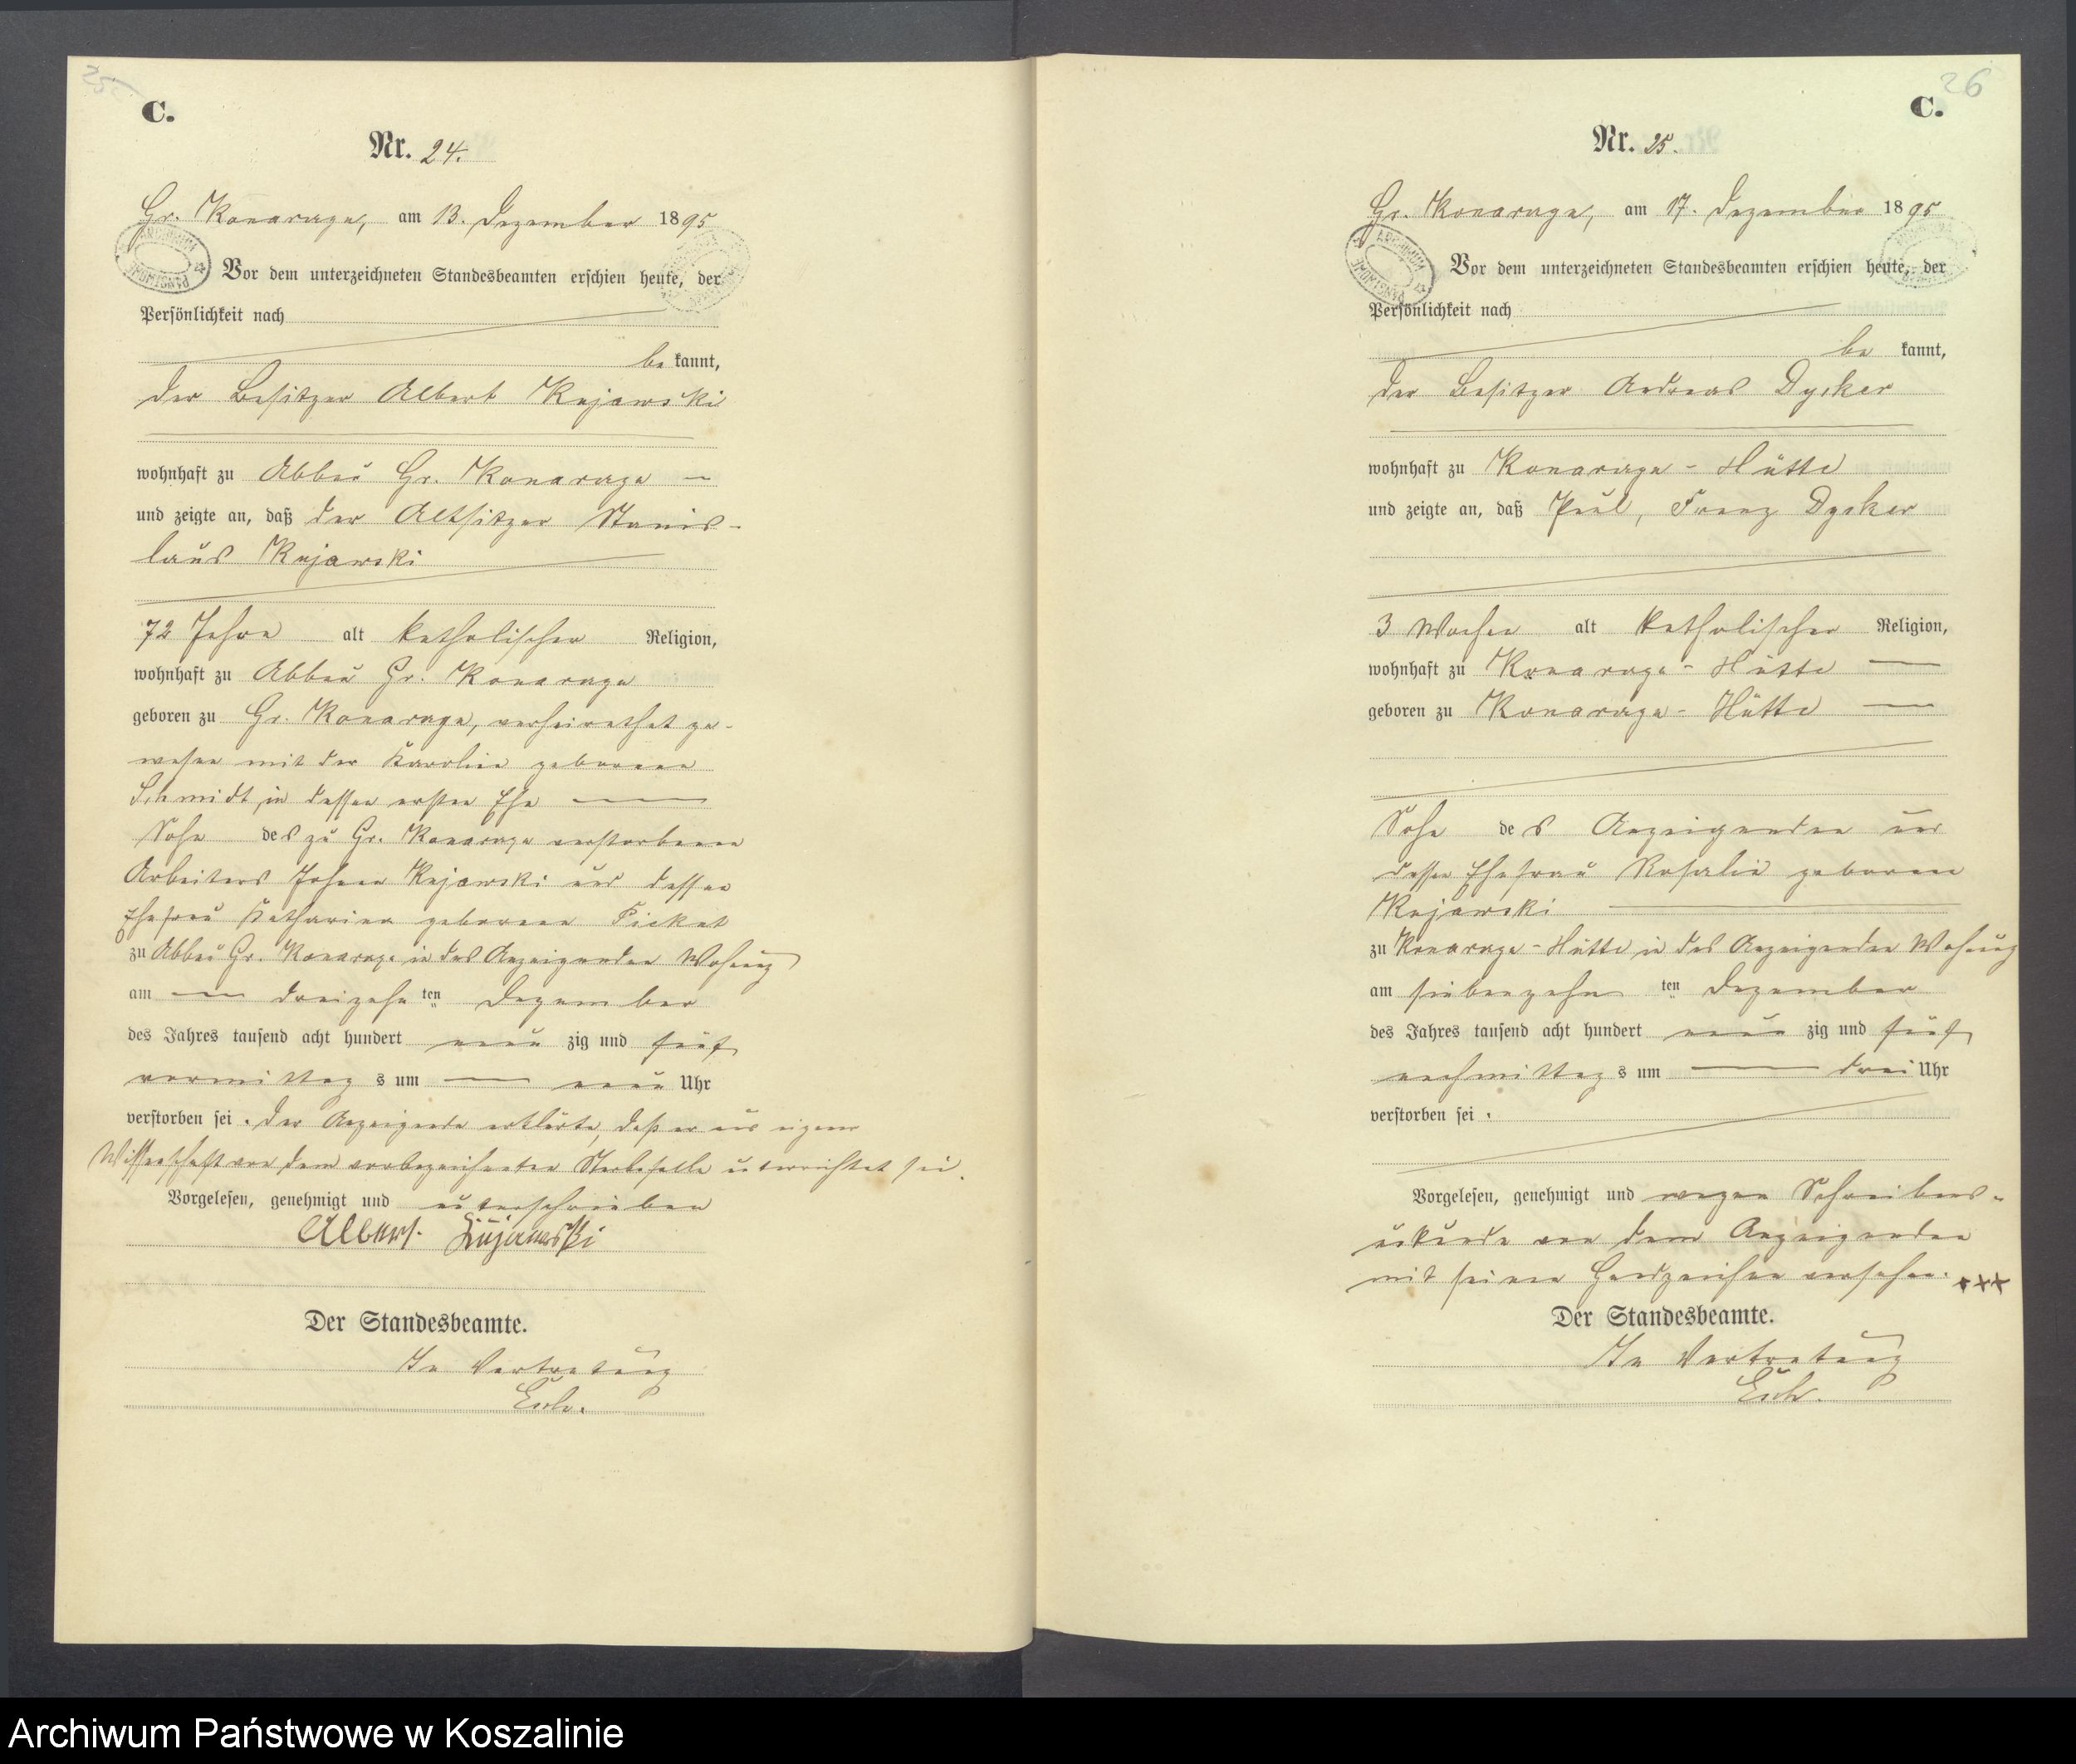 25
C.
Nr. 24.
Gr. Konarczyn, am 13. Dezember 1895
Vor dem unterzeichneten Standesbeamten erschien heute, der
Persönlichkeit nach
be kannt,
der Besitzer Albert Kujawski
wohnhaft zu Abbau Gr. Konarczyn
und zeigte an, daß der Altsitzer Stanis-
laus Kujawski
72 Jahre alt katholischer Religion,
wohnhaft zu Abbau Gr. Konarczyn
geboren zu Gr. Konarczyn, verheirathet ge-
wesen mit der Karolin geborenen
Schmidt, in dessen ersten Ehe
Sohn des zu Gr. Konarczyn verstorbenen
Arbeiters Johann Kujawski und dessen
Ehefrau Katharina geborenen
zu Abbau Gr. Konarczyn in des Anzeigenden Wohnung
am dreizehn ten Dezember
des Jahres tausend acht hundert neun zig und fünf
vormittag s um neun Uhr
verstorben sei. Der Anzeigende erklärte, daß er aus eigener
Wissenschaft von dem vorbezeichneten Sterbefalle unterrichtet sei.
Vorgelesen, genehmigt und unterschrieben
Albert Kujawski
Der Standesbeamte.
In Vertretung
26
C.
Nr. 25.
Gr. Konarczyn, am 17. Dezember 1895
Vor dem unterzeichneten Standesbeamten erschien heute, der
Persönlichkeit nach
be kannt,
der Besitzer Andreas Dysker
wohnhaft zu Konarczyn-Hütte
und zeigte an, daß Paul, Franz Dysker
3 Wochen alt katholischer Religion,
wohnhaft zu Konarczyn-Hütte
geboren zu Konarczyn-Hütte
Sohn des Anzeigenden und
dessen Ehefrau Rosalie geborenen
Kujawski
zu Konarczyn-Hütte in des Anzeigenden Wohnung
am siebenzehn ten Dezember
des Jahres tausend acht hundert neun zig und fünf
nachmittag s um drei Uhr
verstorben sei.
Vorgelesen, genehmigt und wegen Schreibens-
unkunde von dem Anzeigenden
mit seinem Handzeichen versehen. +++
Der Standesbeamte.
In Vertretung
Archiwum Państwowe w Koszalinie